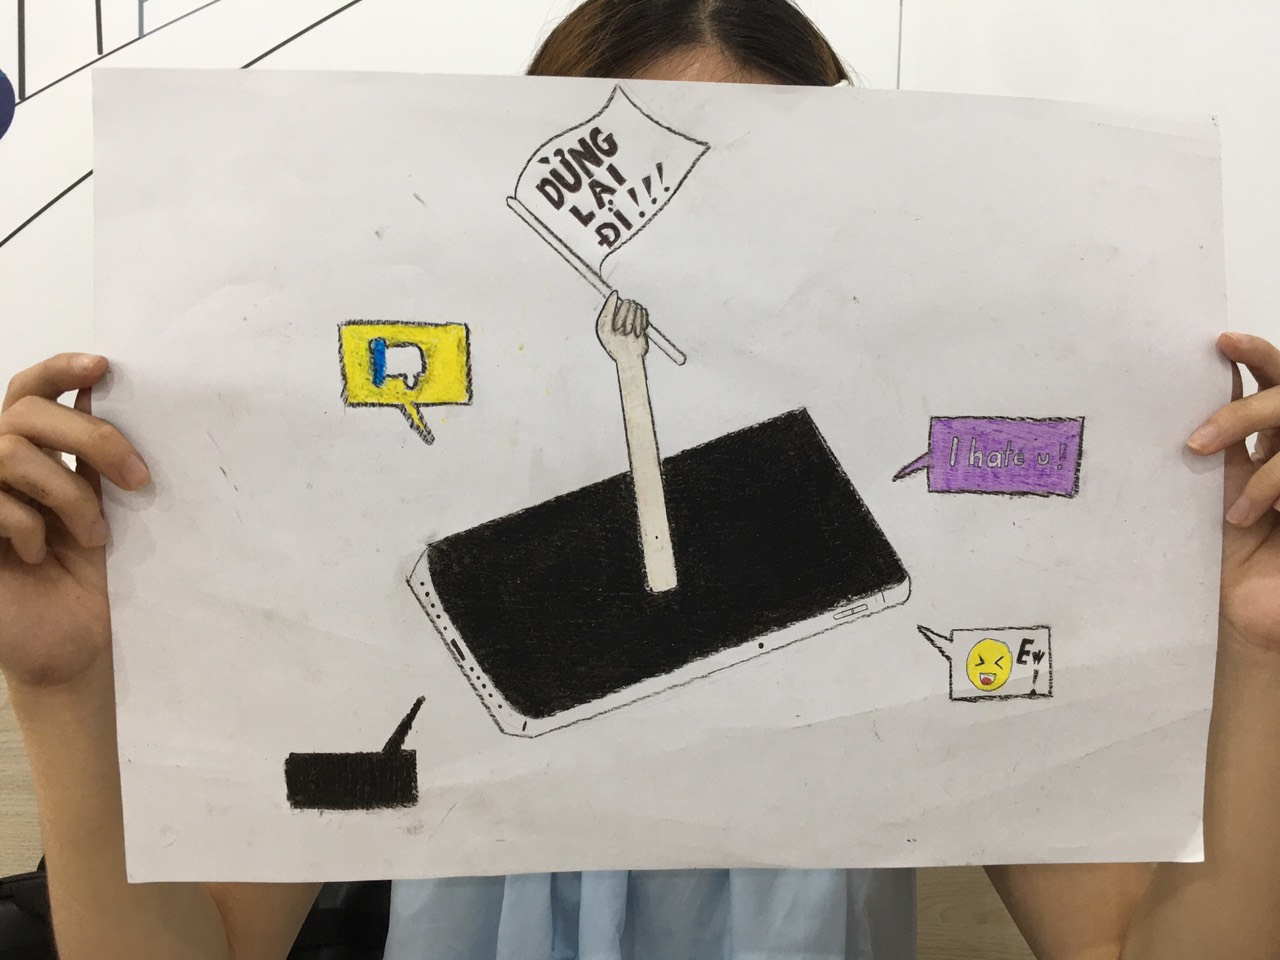 DỪNG
LẠI
ĐI!!!
I hate u!
Ew
!